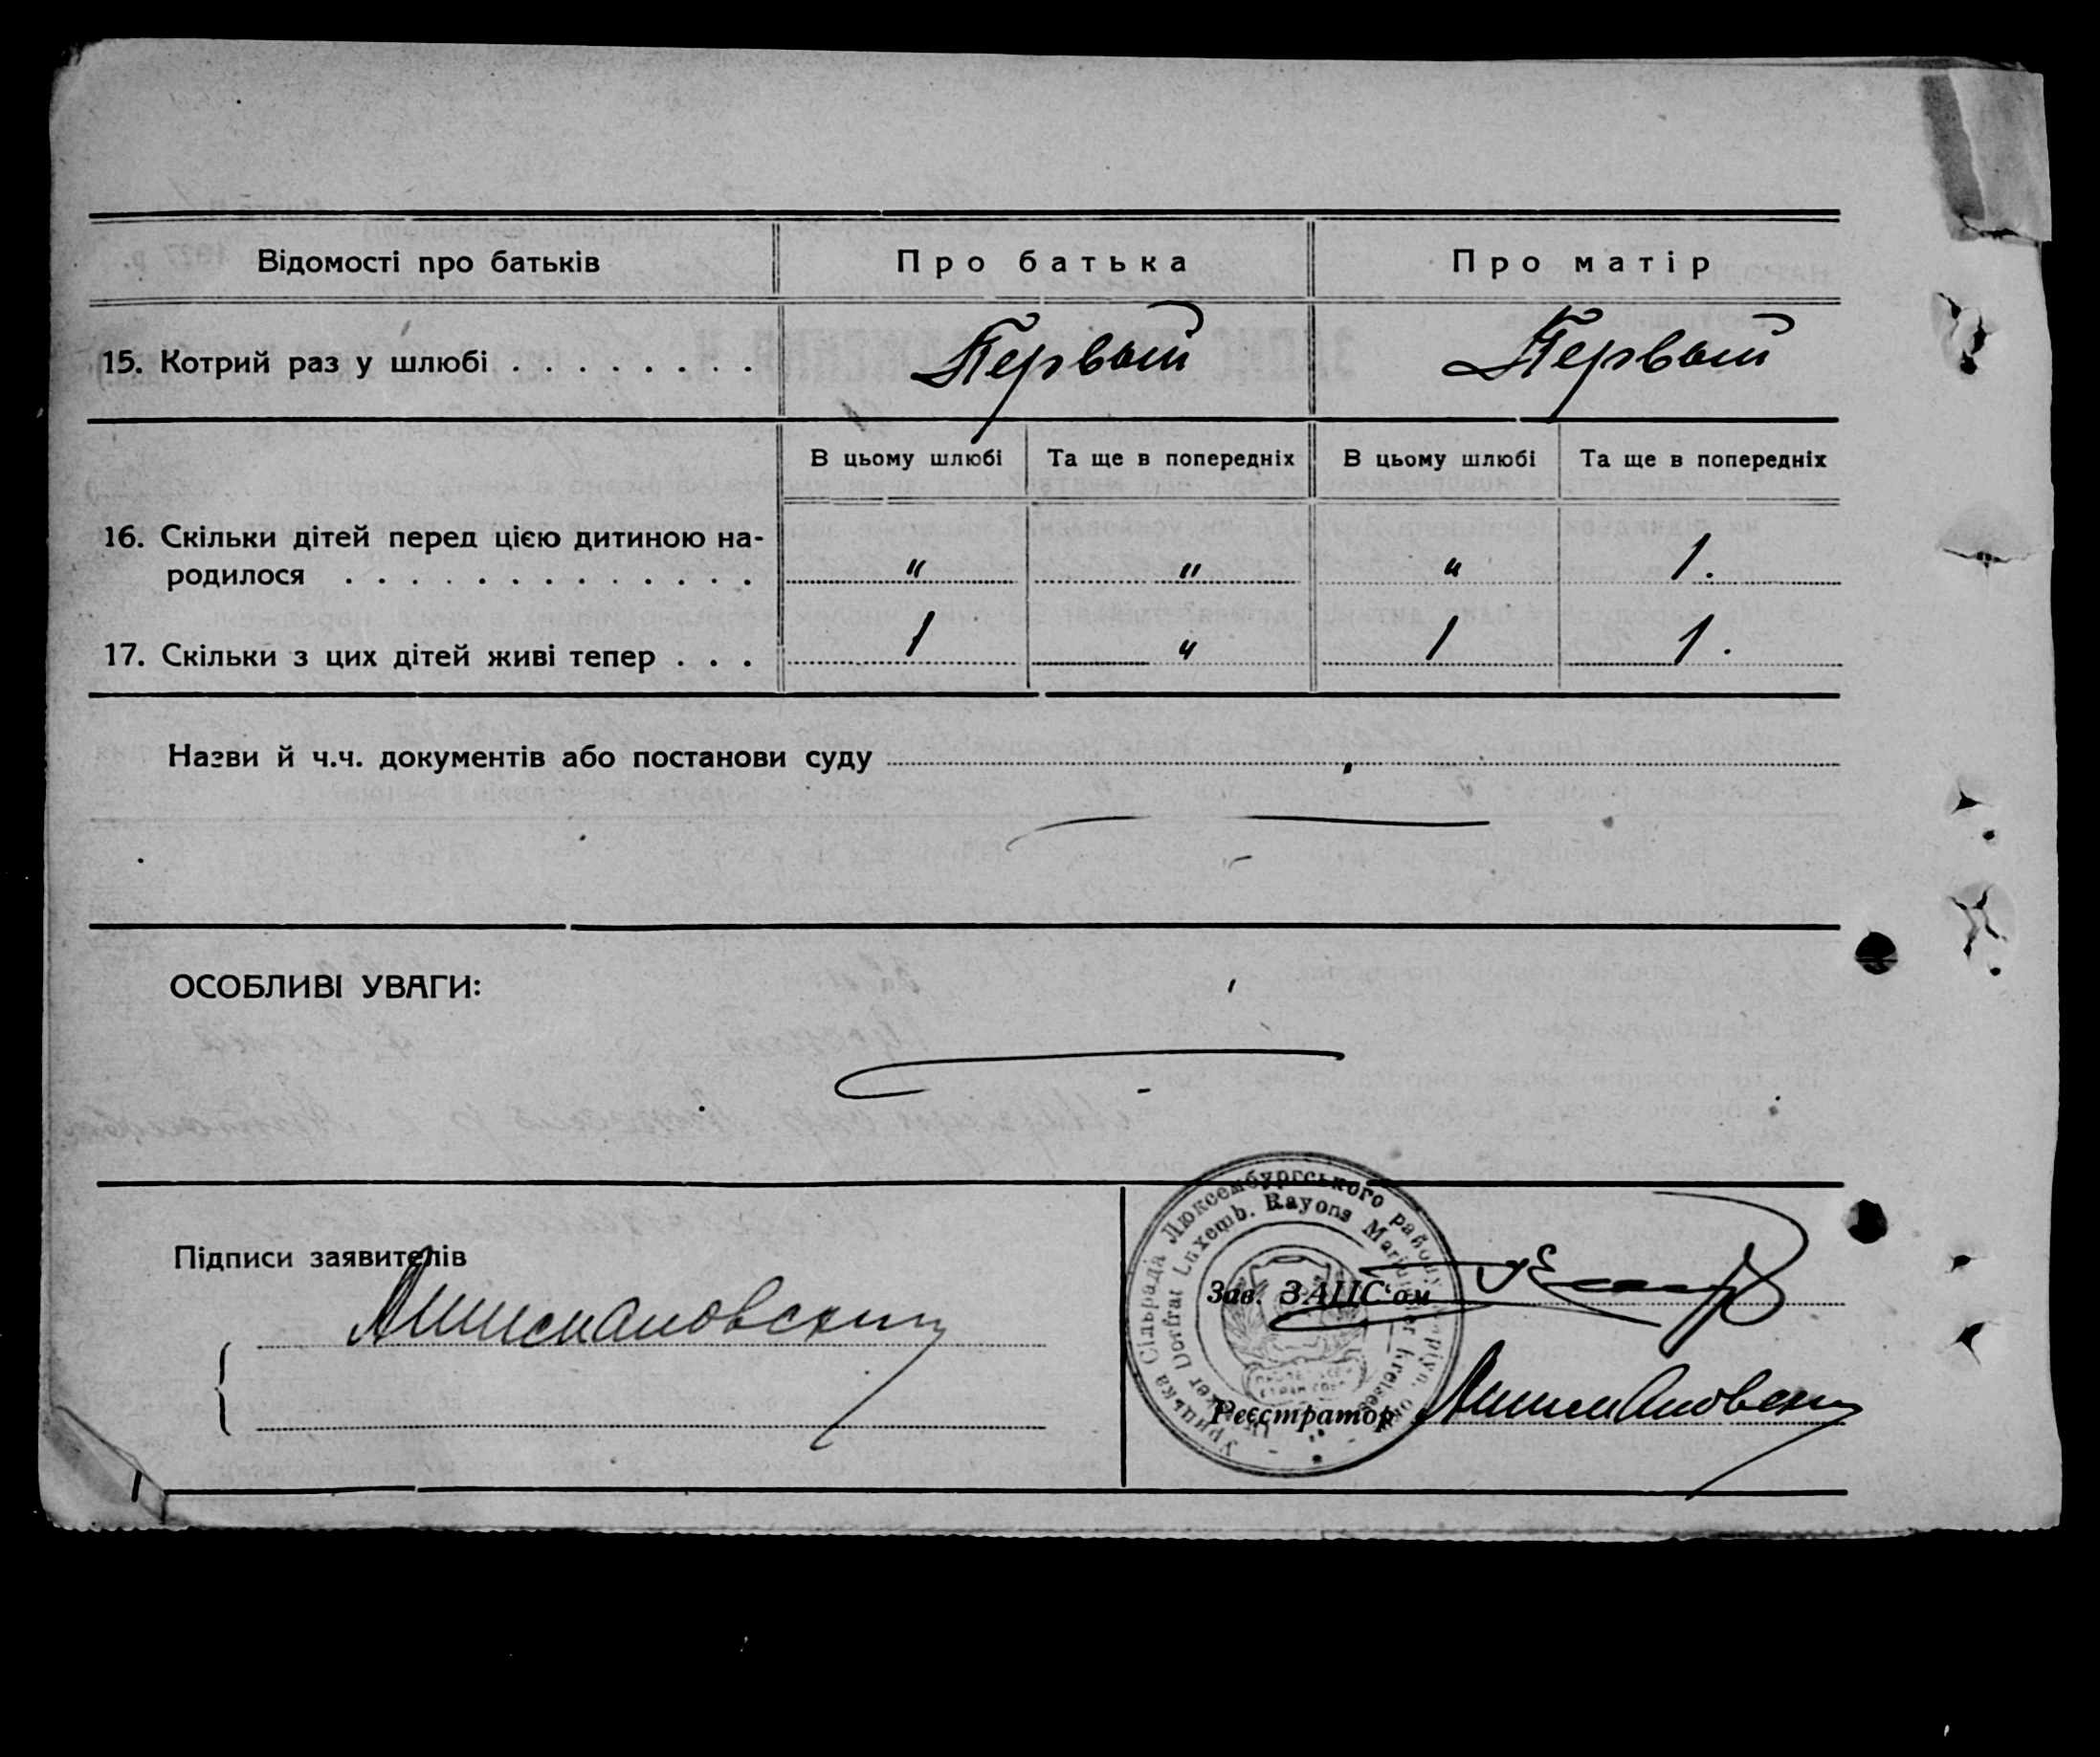 Відомості про батьків Про батька Про матір
15. Котрий раз у шлюбі . . . . . . . . Первый Первый
В цьому шлюбі Та ще в попередніх В цьому шлюбі Та ще в попередніх
16. Скільки дітей перед цією дитиною на-
родилося . . . . . . . . . . . . . " " " 1.
17. Скільки з цих дітей живі тепер . . . 1 " 1 1.
Назви й ч.ч. документів або постанови суду
ОСОБЛИВІ УВАГИ:
Урицька Сільрада Люксембургського району Маріуп. окр.
Dorfrat Luxemb. Rayons Mariupoler Kreises
Підписи заявителів
Зав. ЗАГС'ом
Реєстратор